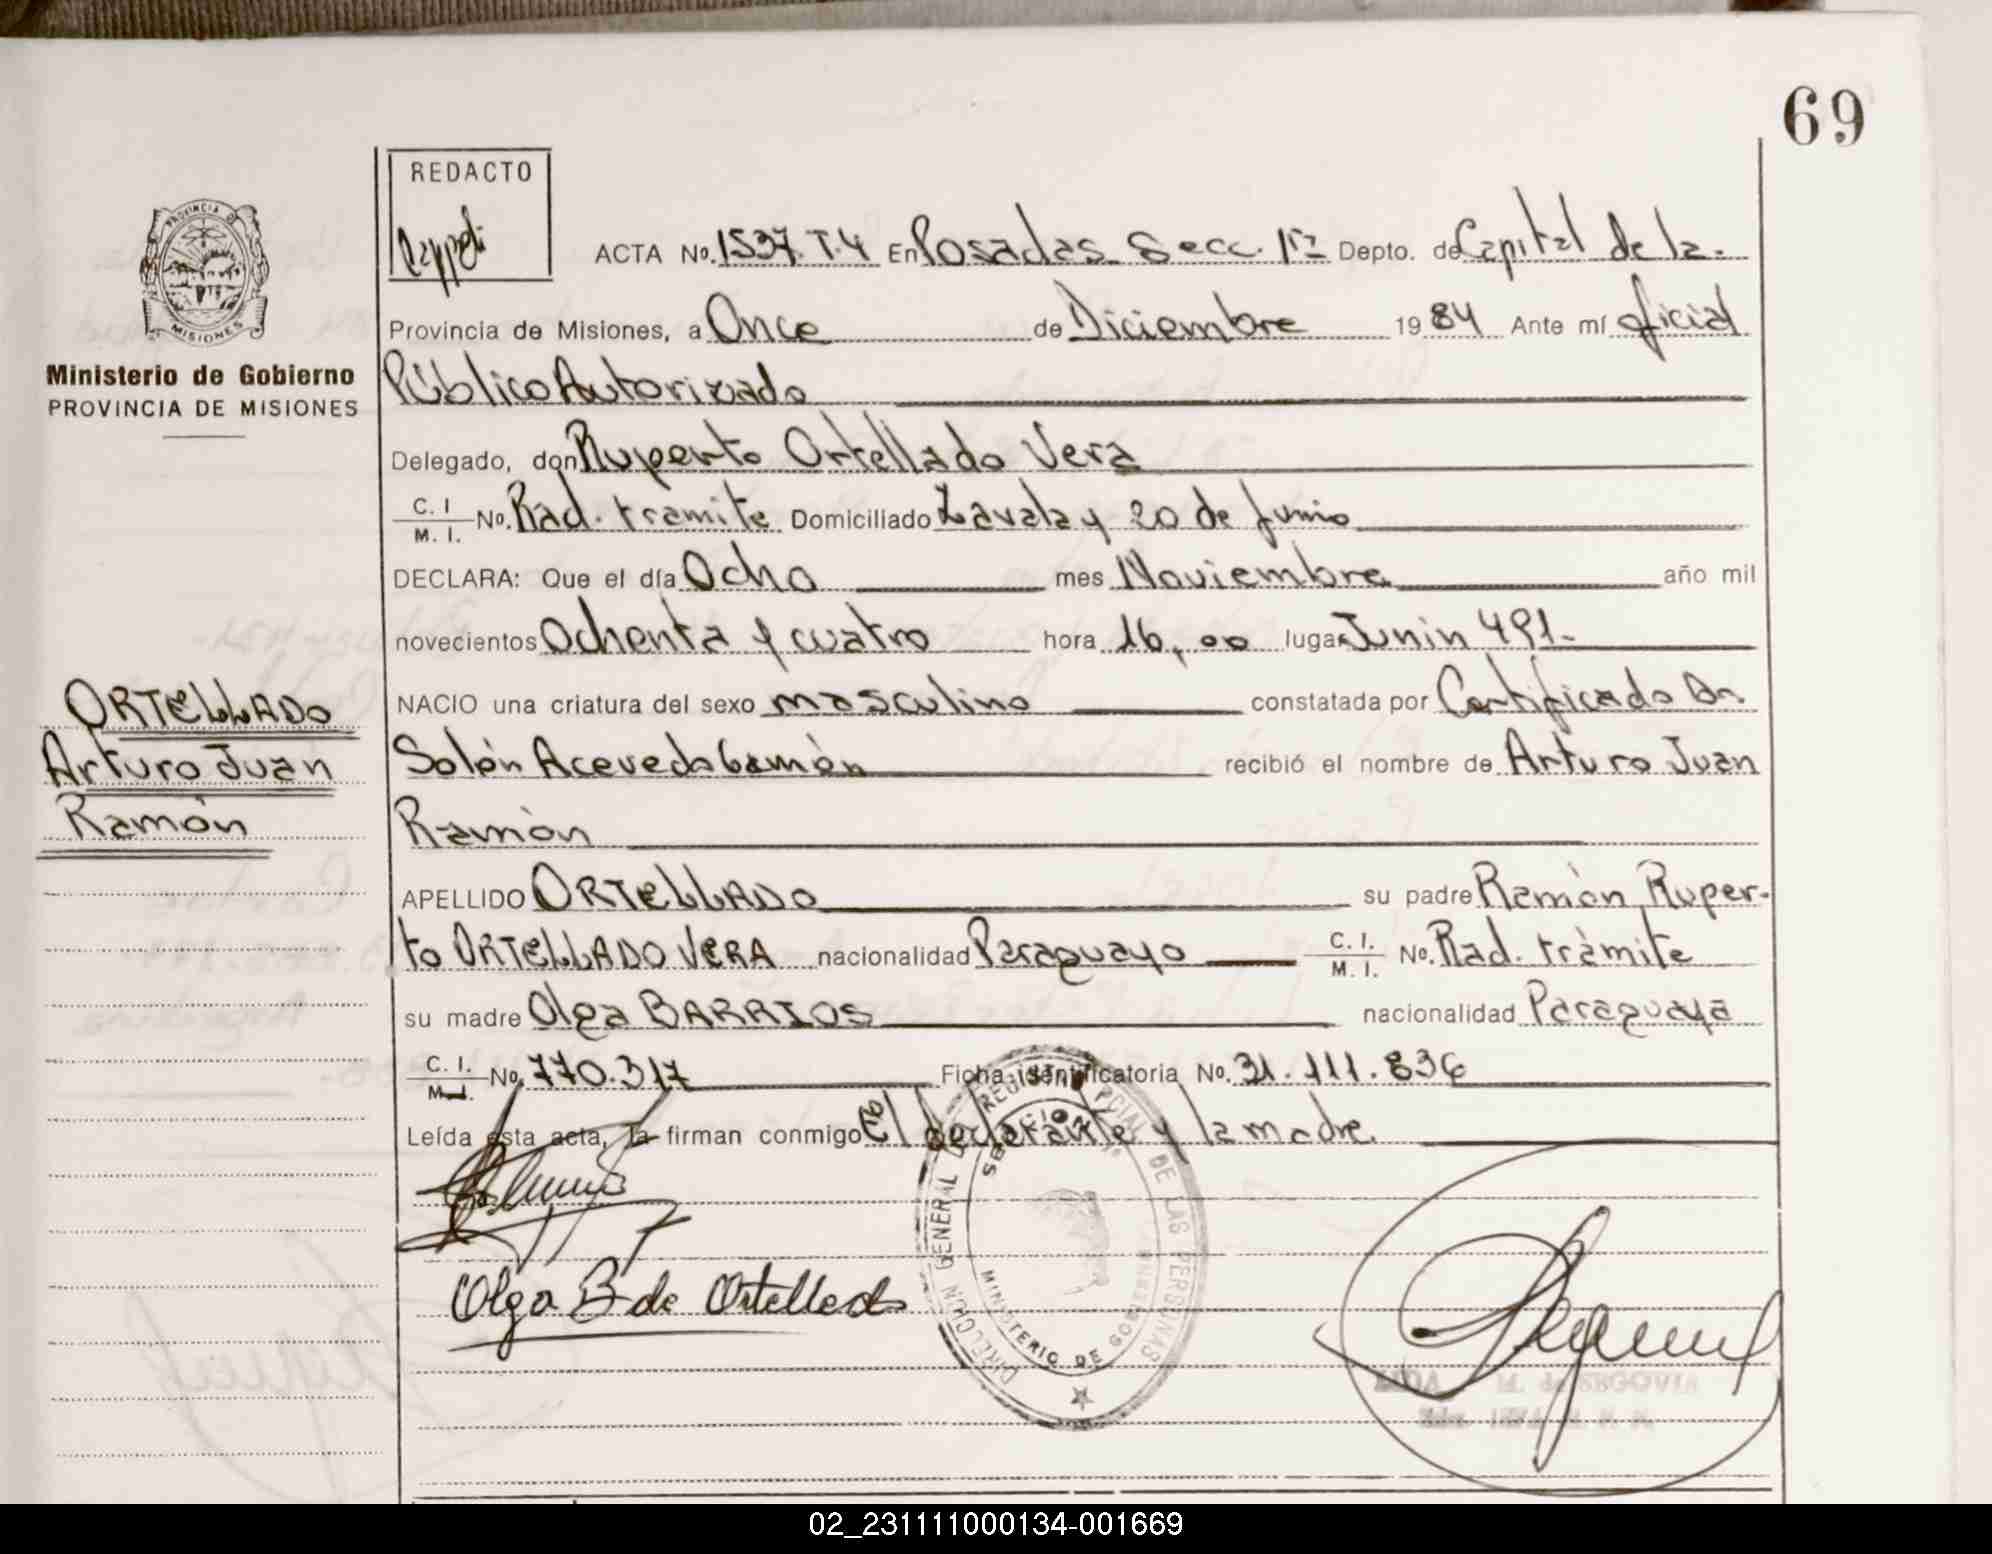 69
REDACTO
ACTA No. 1537. T.4 En Posadas Secc. 1ra Depto. de Capital de la.
Provincia de Misiones, a Once de Diciembre 1984 Ante mí oficial
Público Autorizado
Delegado, don Ruperto Ortellado Vera
C. I / M. I. No. Rad. tramite Domiciliado Zavala y 20 de Junio
DECLARA: Que el día Ocho mes Noviembre año mil
novecientos Ochenta y cuatro hora 16,00 lugar Junin 491.-
NACIO una criatura del sexo masculino constatada por Certificado Dr.
Solón Acevedo Gamón recibió el nombre de Arturo Juan
Ramón
APELLIDO ORTELLADO su padre Ramón Ruper-
to ORTELLADO VERA nacionalidad Paraguayo C. I. / M. I. No. Rad. tràmite
su madre Olga BARRIOS nacionalidad Paraguaya
C. I. / M. I. No. 770.317 Ficha identificatoria No. 31.111.836
Leída esta acta, la firman conmigo El declarante y la madre.
Olga B de Ortellado
PROVINCIA DE MISIONES
Ministerio de Gobierno
PROVINCIA DE MISIONES
ORTELLADO
Arturo Juan
Ramón
DIRECCION GENERAL DEL REGISTRO PCIAL DE LAS PERSONAS
MINISTERIO DE GOBIERNO
M. de SEGOVIA
02_231111000134-001669